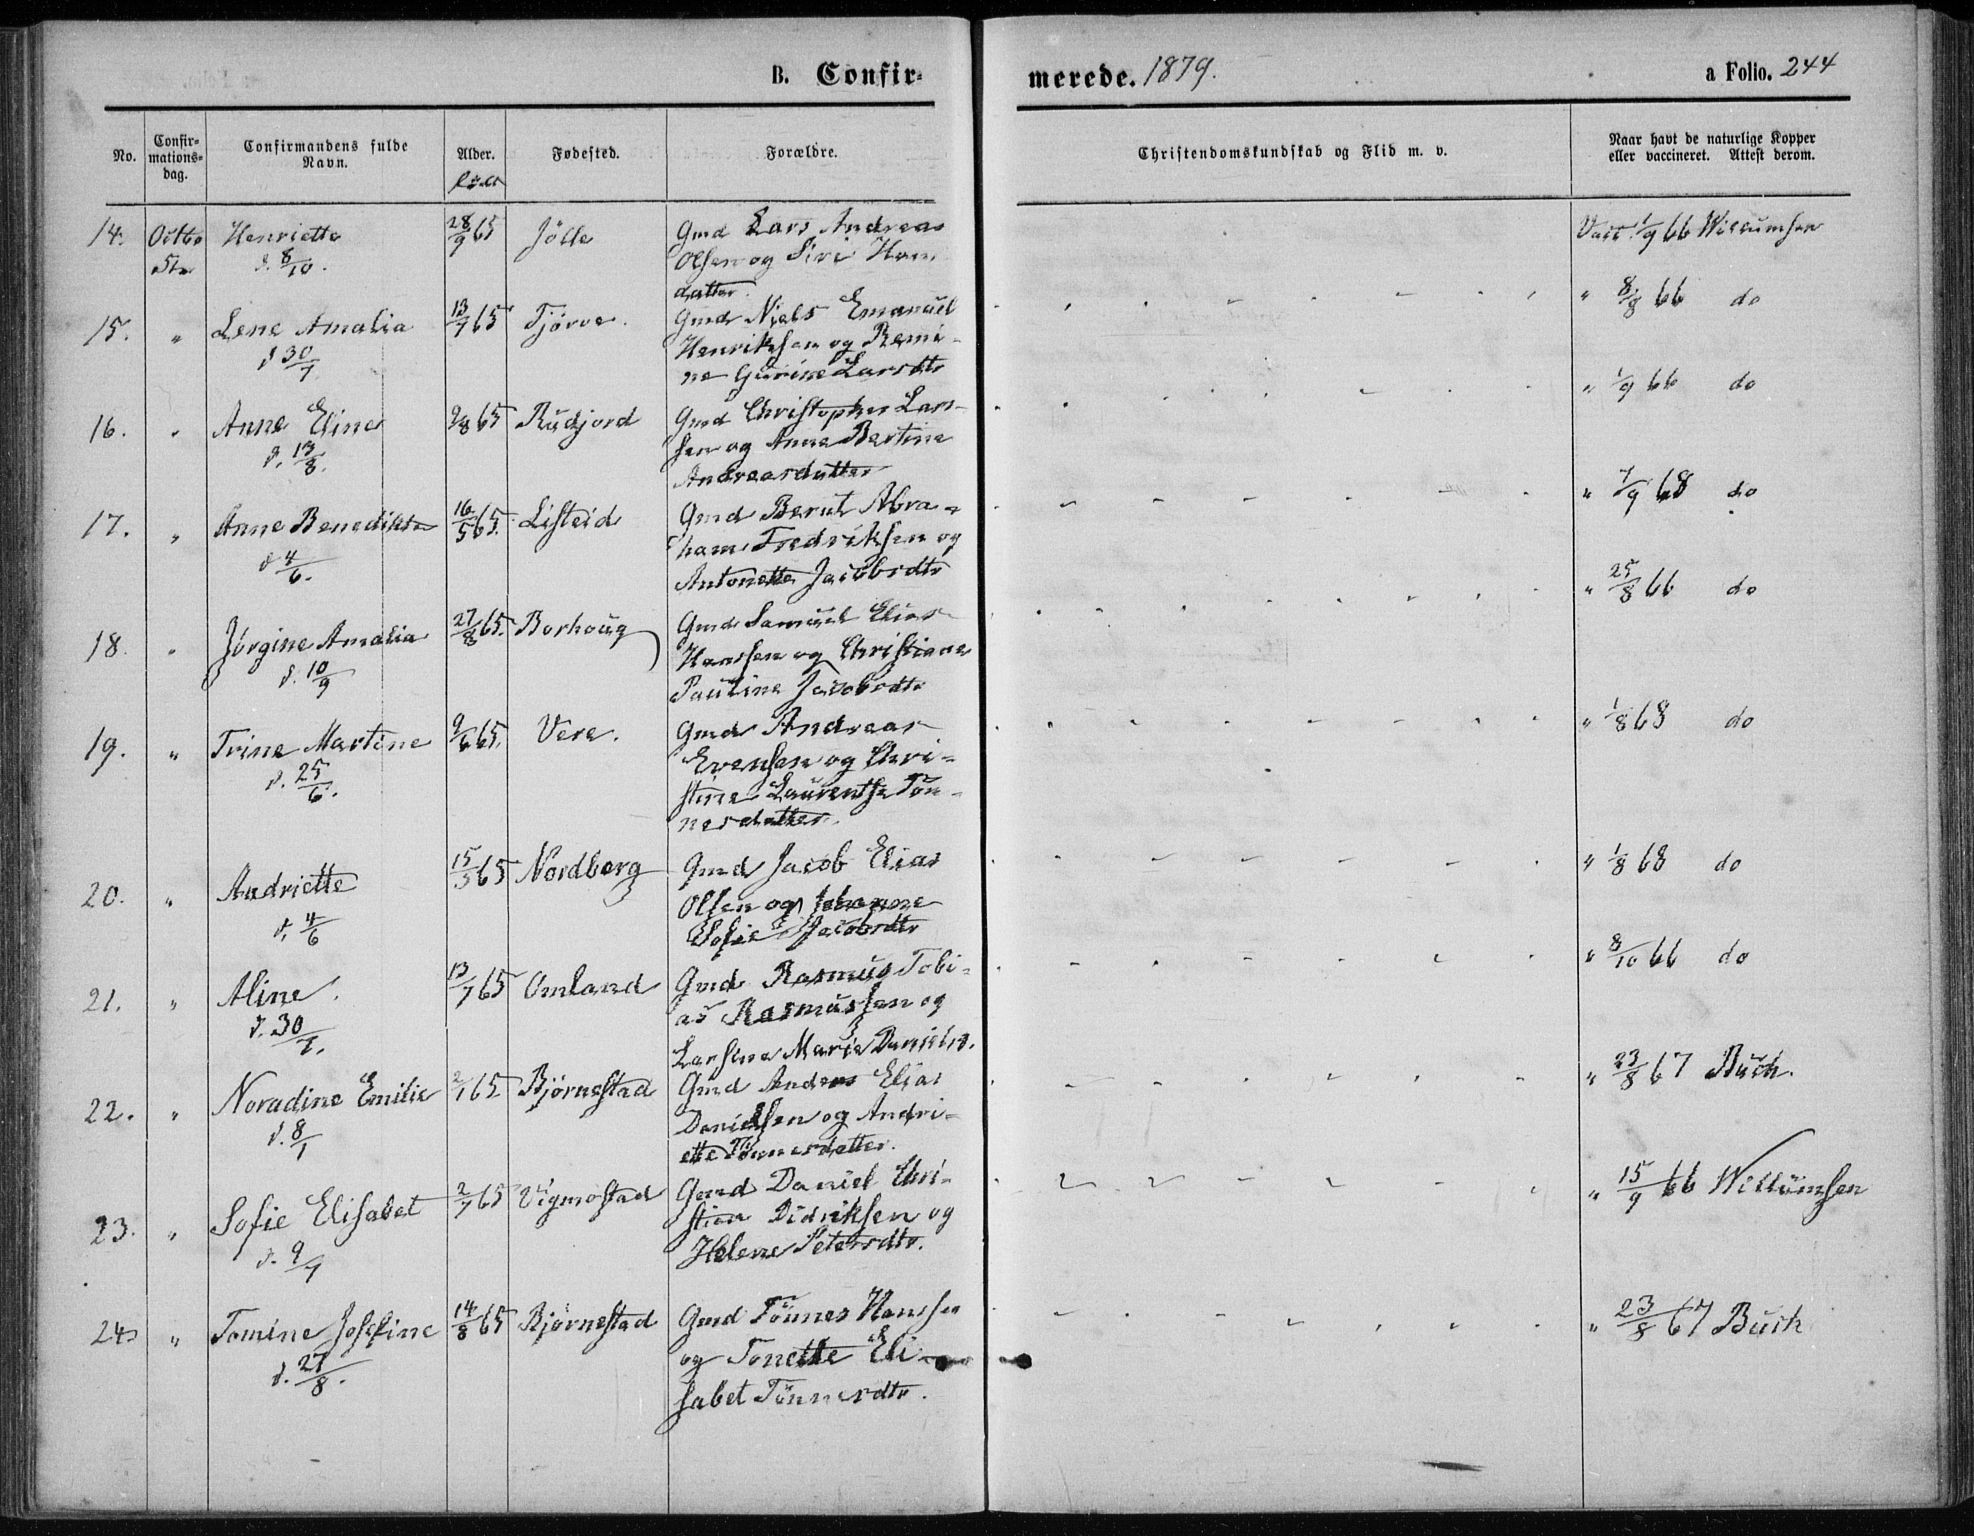 B. Confir-
merede. 1879.
a Folio. 244
No.
Confir-
mations-
dag.
Confirmandens fulde
Navn.
Alder.
Fødested.
Forældre.
Christendomskundskab og Flid m. v.
Naar havt de naturlige Kopper
eller vaccineret. Attest derom.
14. Octbr Henriette 28/9 65 Jölle Gmd Lars Andreas Vacc. 1/9 66 Willumsen
5te d. 8/10. Olsen og Siri Han
datter.
15. " Lene Amalia 13/7 65 Tjørve. Gmd Niels Emanuel " 8/8 66 do
d 30/7 Henriksen og Remi-
ne Gurine Larsdtr
16. " Anne Eline 2/8 65 Rudjord Gmd Christopher Lar- " 1/9 66 do
d. 13/8. sen og Anne Bertine
Andreasdatter
17. " Anne Benedikte 16/5 65. Listeid Gmd Bernt Abra- " 7/9 68 do
d 4/6. ham Fredriksen og
Antonette Jacobsdtr
18. " Jörgine Amalia 27/8 65. Borhoug Gmd Samuel Elias " 25/8 66 do
d. 10/9 Hansen og Christiane
Pauline Jacobsdtr
19. " Trine Martine 9/6 65. Vere. Gmd Andreas " 1/8 68 do
d. 25/6. Evensen og Chri-
stine Laurentse Tön-
nesdatter.
20. " Andriette 15/5 65 Nordberg Gmd Jacob Elias " 1/8 68 do
d. 4/6 Olsen og Johanne
Sofie Jacobsdtr
21. " Aline. 13/7 65 Omland Gmd Rasmus Tobi- " 8/10 66 do
d. 30/7. as Rasmussen og
Larsine Marie Danielsd.
22. " Noradine Emilie 2/1 65 Bjørnestad Gmd Anders Elias " 23/8 67 Buch.
d. 8/1 Danielsen og Andri-
ette Tönnesdatter.
23. " Sofie Elisabet 2/7 65 Vigmostad Gmd Daniel Chri- " 15/9 66 Willumsen
d. 9/7 stian Didriksen og
Helene Petersdtr.
24 " Tomine Josefine 14/8 65 Bjørnestad Gmd Tönnes Hansen " 23/8 67 Buch
d. 27/8. og Tonette Eli-
sabet Tönnesdtr.